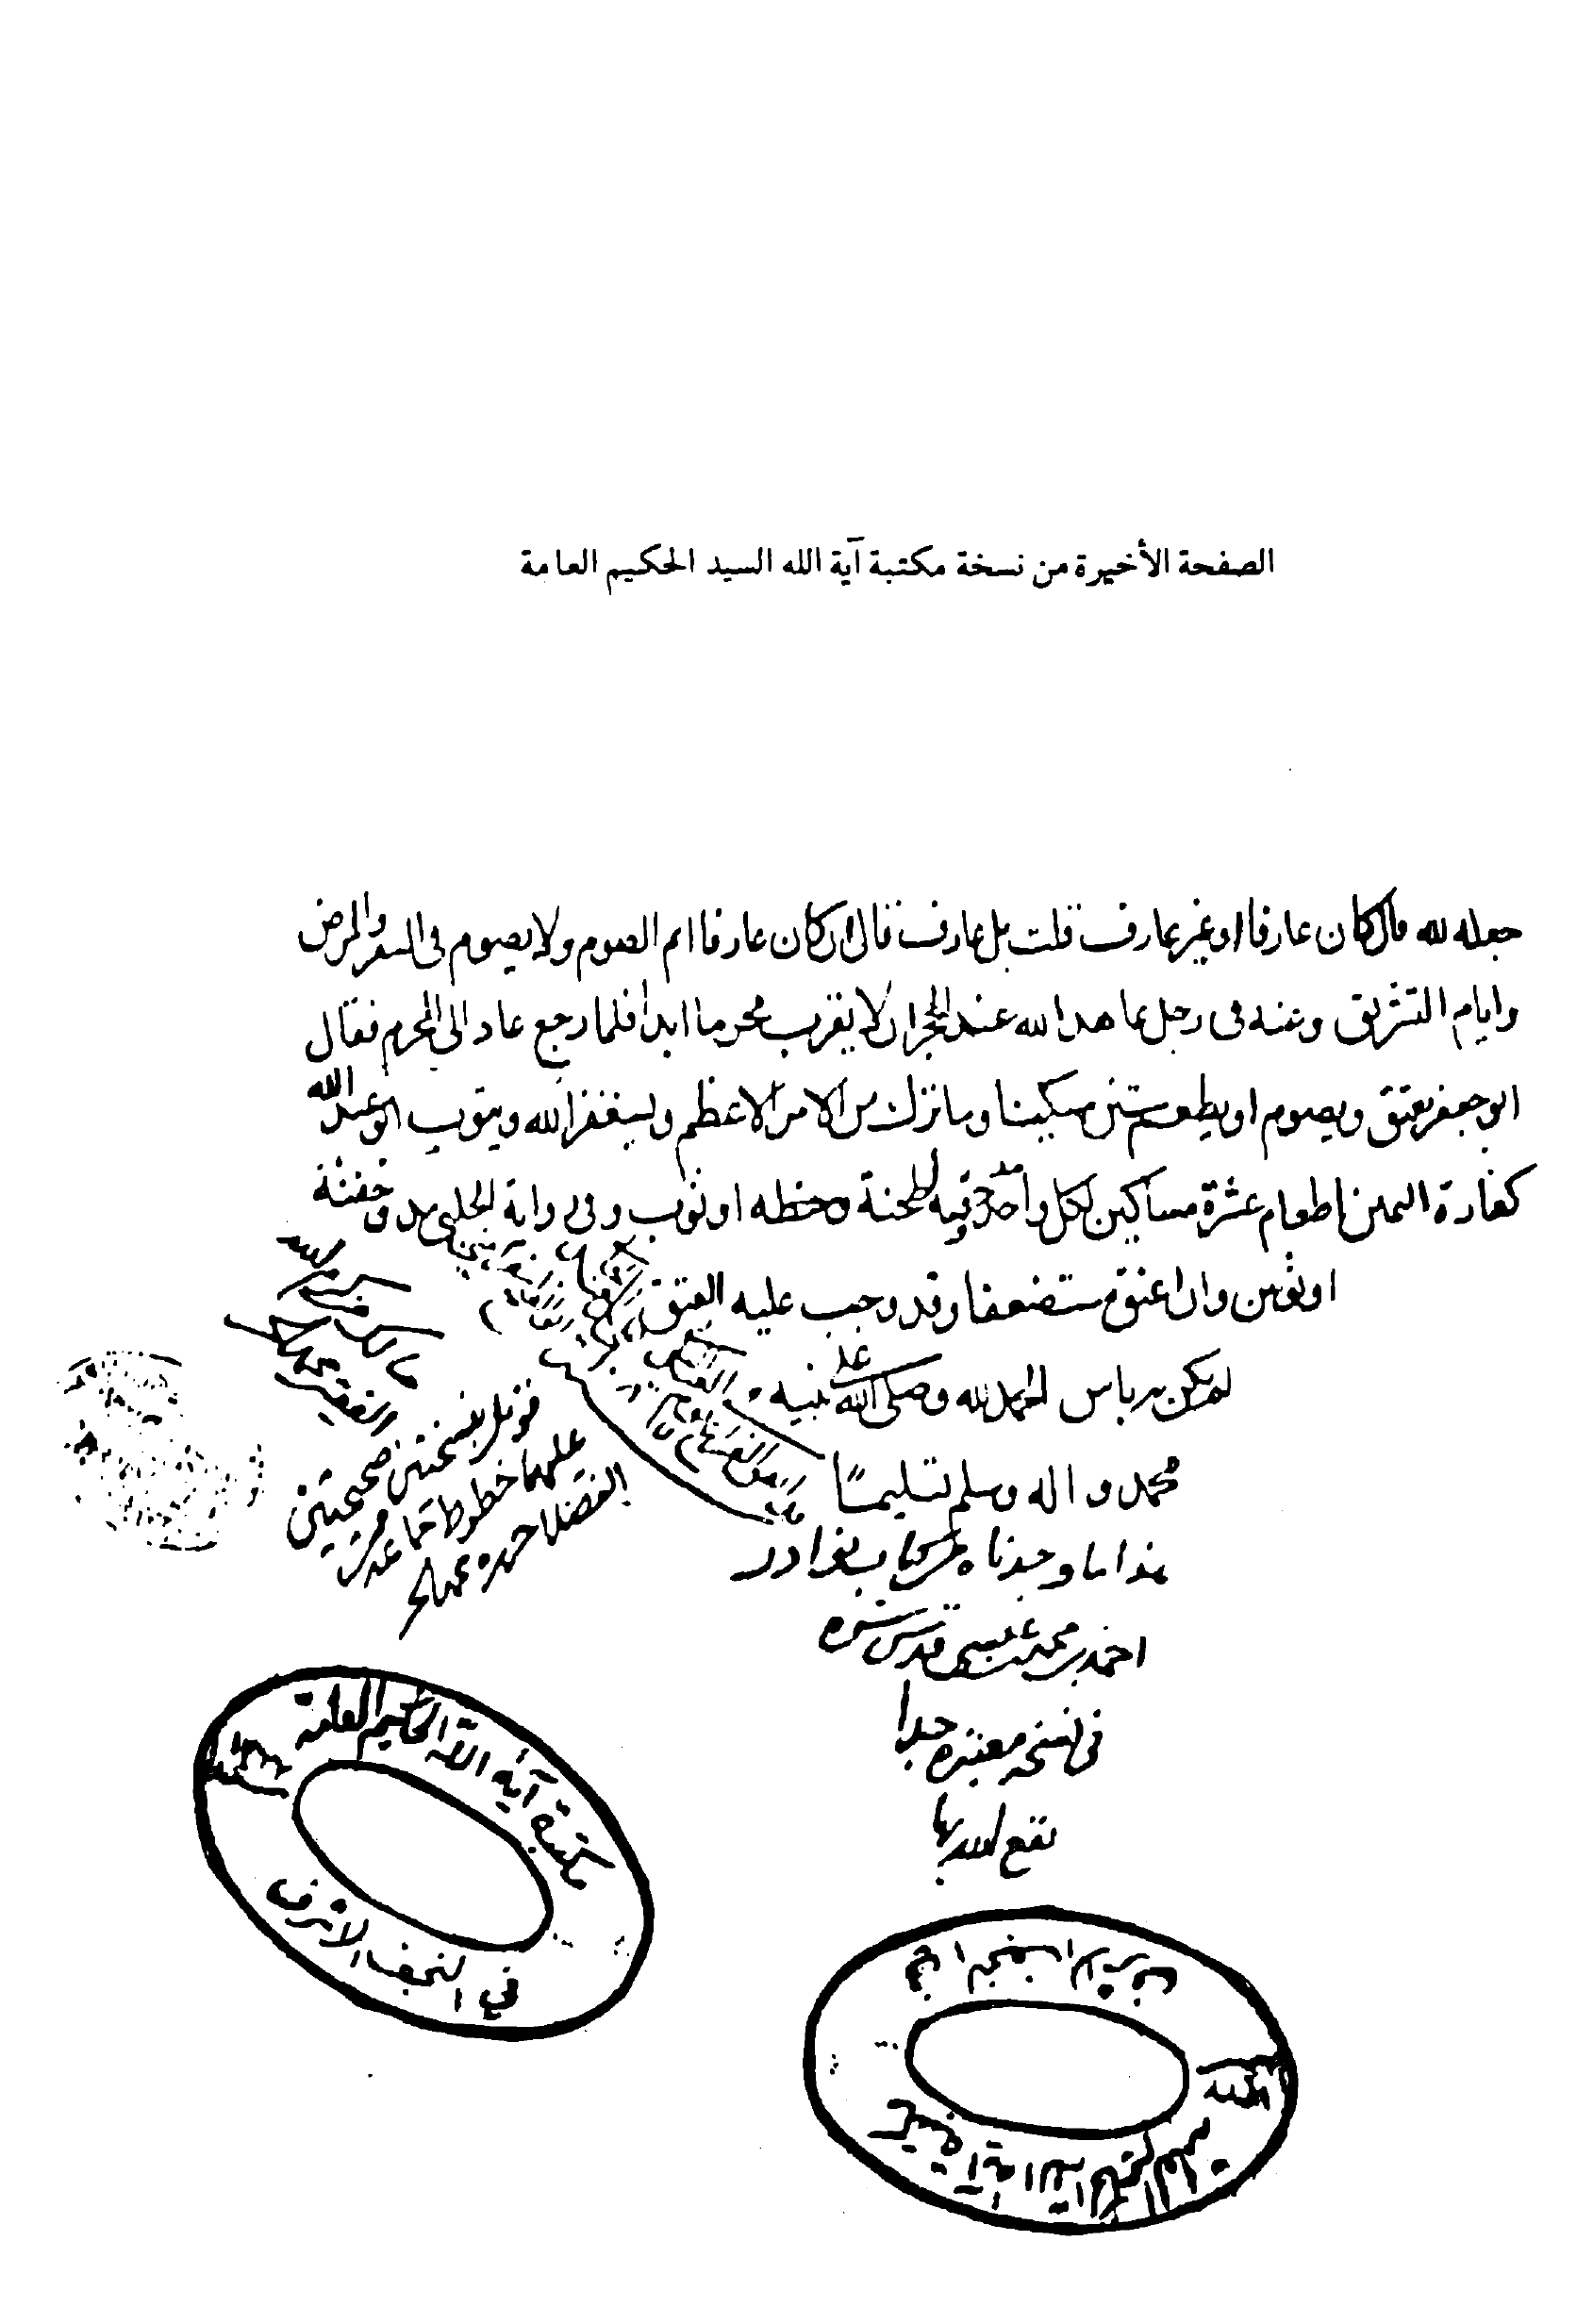 الصفحة الأخيرة من نسخة مكتبة آية الله السيد الحكيم العامة
جعله لله قال كان عارفا او غير عارف قلت بل عارف قال ان كان عارفا اتم الصوم ولا يصوم في السفر والمرض
وايام التشريق وعنه في رجل عاهد الله عند الحجر ان لا يقرب محرما ابدا فلما رجع عاد الى المحرم فقال
ابو جعفر يعتق ويصوم او يطعم ستين مسكينا وما ترك من الامر الاعظم وليستغفر الله ويتوب ابو عبد الله
كفارة اليمين اطعام عشرة مساكين لكل واحد مد فيه لطحنه وحنطه او ثوب وفي رواية الحلبي مد وحفنة
او ثوبين وان اعتق مستضعفا وقد وجب عليه العتق
لم يكن به باس الحمد لله وصلى الله على نبيه
محمد واله وسلم تسليما
هذا ما وجدناه من كتاب نوادر
احمد بن محمد بن عيسى قدس سره
في نسخه معتبره جدا
نفع الله بها
قوبل بنسختين صحيحتين
عليهما خطوط جماعة من
الفضلا حرره محمد الحر
مكتبة آية الله الحكيم العامة
في النجف الاشرف